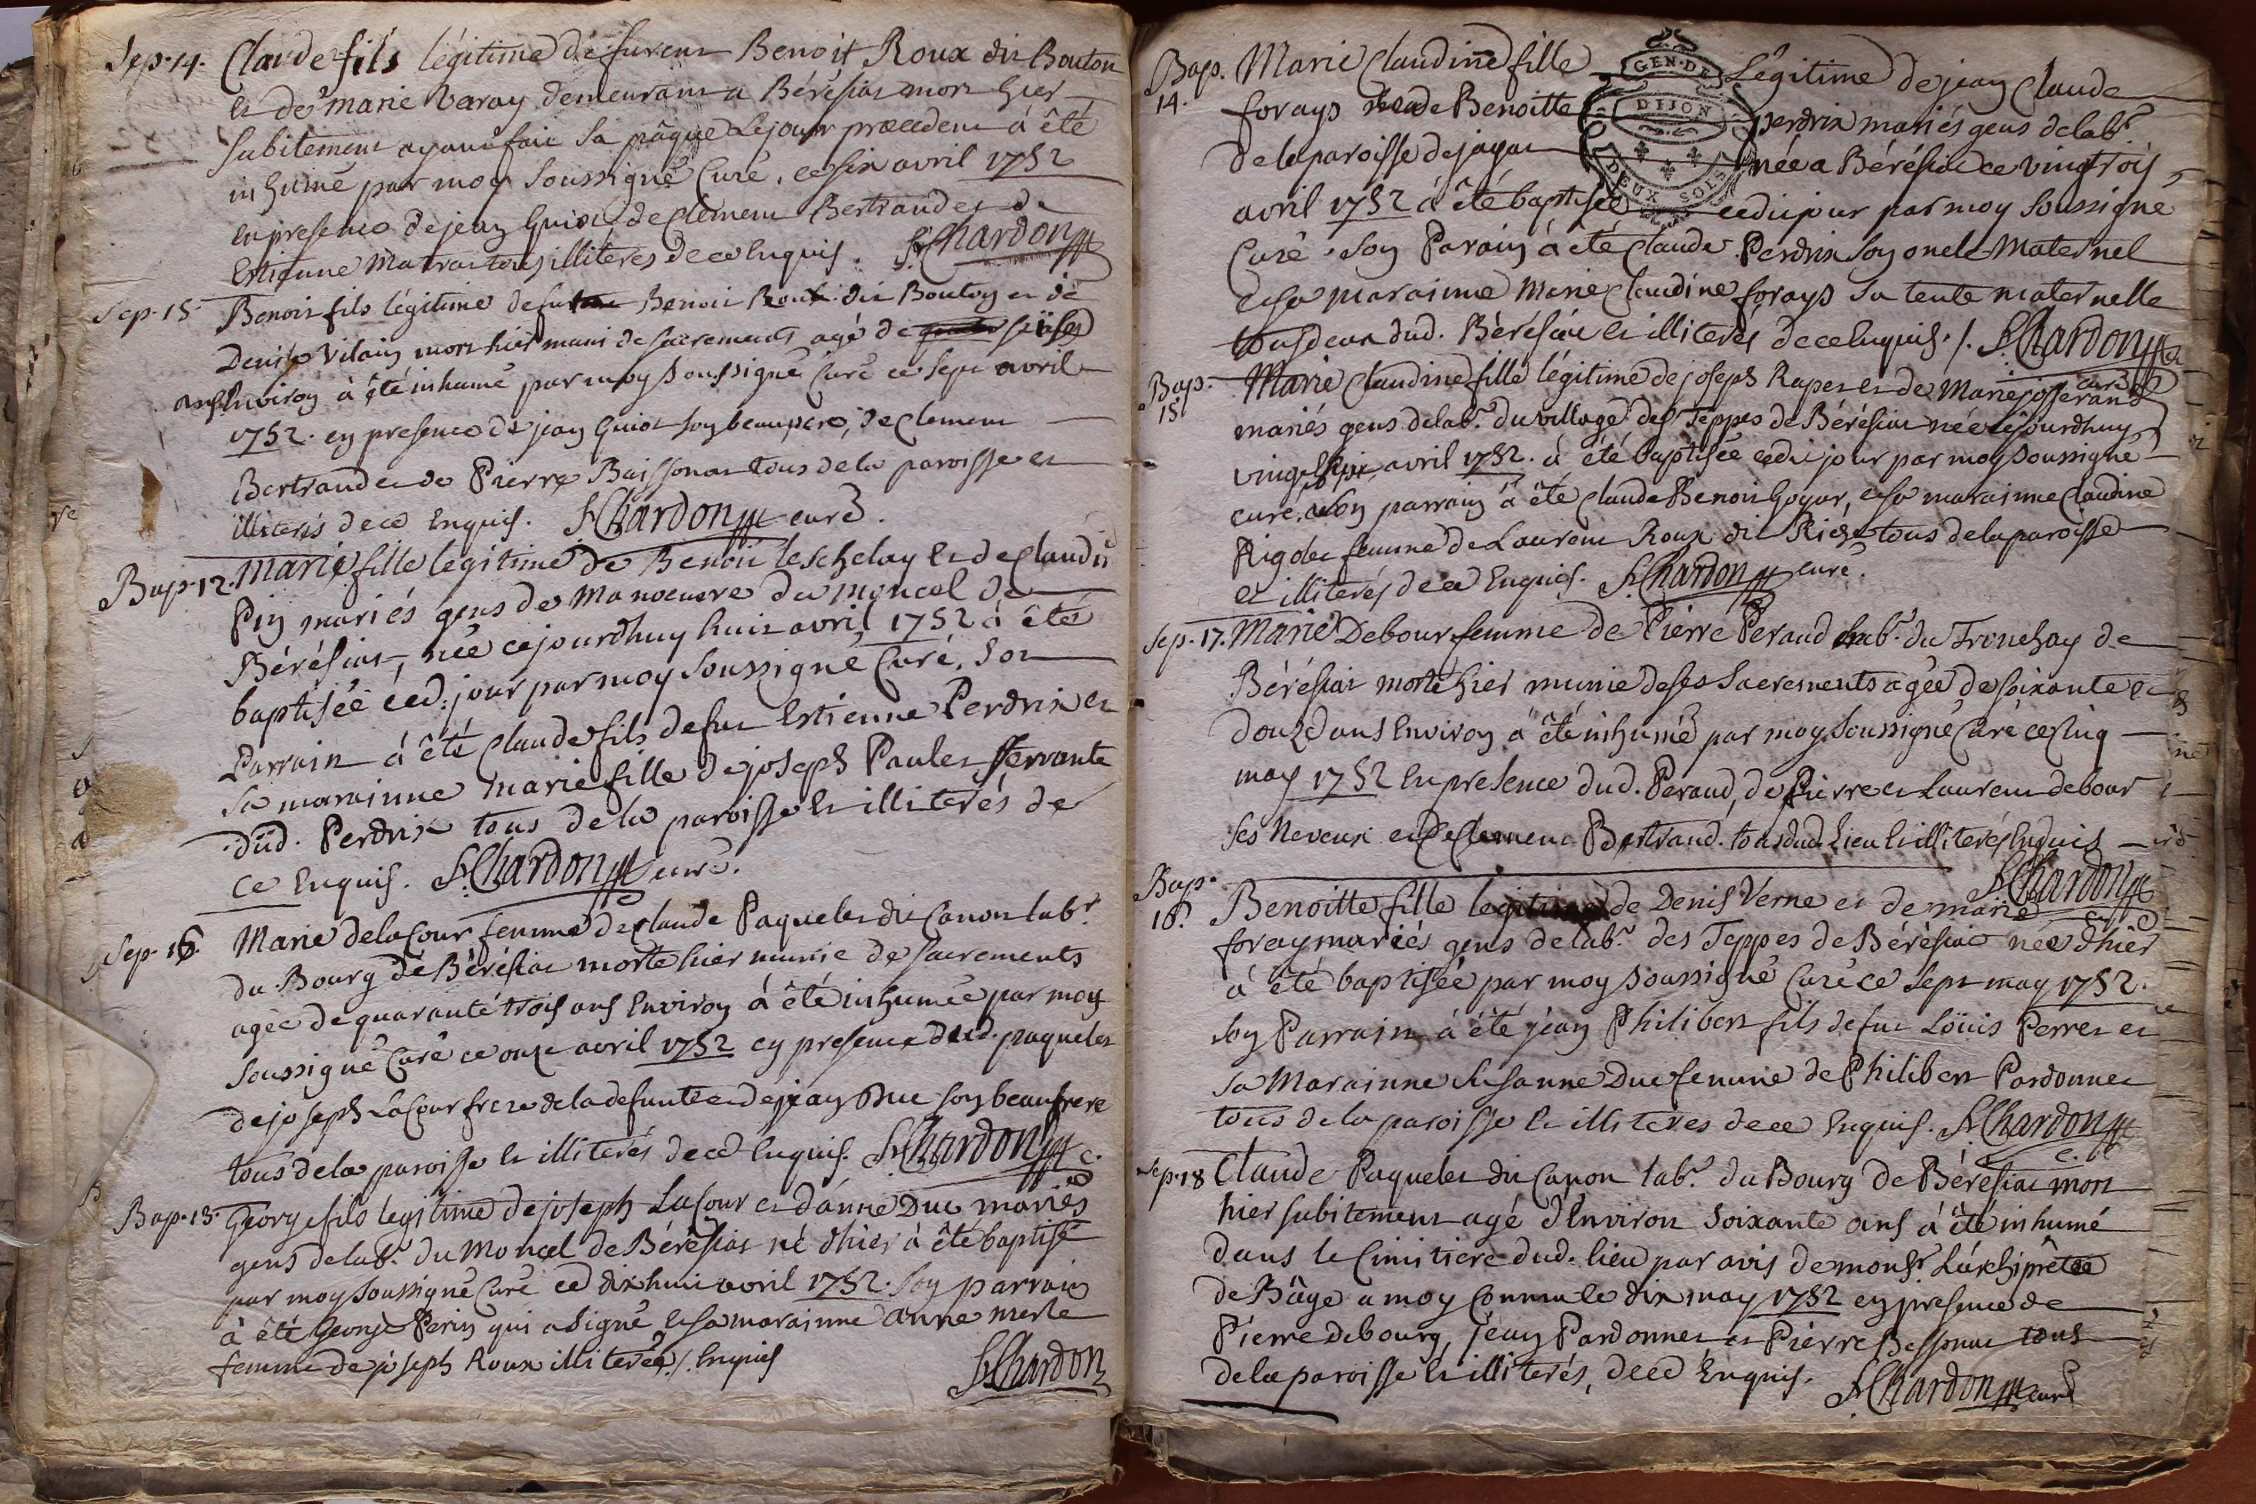 Sep. 14. Claude fils légitime de furent Benoit Roux dit Bouton
et de marie Varay demeurant a Béréziat mort hier
subitement ayant fait sa pâque le jour precedent à été
inhumé par moy soussigné Curé, ce six avril 1752
en presence de jean Guiot de Clement Bertrand et de
Estienne illiterés de ce Enquis. F. Chardon
Sep. 15 Benoit fils légitime de fut Benoit Roux dit Bouton et de
Denise Vilain mort hier muni de sacrements agé de seize
ans Environ à été inhumé par moy soussigné Curé ce sept avril
1752. en presence de jean Guiot son beaupere, de Clement
Bertrand et de Pierre Baissonat tous de la paroisse et
illiterés de ce Enquis. F. Chardon curé.
Bap. 12. Marie fille légitime de Benoit leschelay et de Claudi
Pin mariés gens de Manoeuvre du moncel de
Béréziat, née cejourdhuy huit avril 1752 à été
baptisée ced. jour par moy soussigné Curé, son
Parrain à été Claude fils de fut Estienne Perdrix et
sa marainne Marie fille de joseph Paulet servante
dud. Perdrix tous de la paroisse et illiterés de
ce Enquis. F. Chardon curé.
Sep. 16 Marie delaCour femme de Claude Paquelet dit Canon labr.
du Bourg de Béréziat morte hier munie de sacrements
agée de quarante trois ans Environ à été inhumée par moy
soussigné Curé ce onze avril 1752 en presence dud. paquelet
de joseph LaCour frere de la defunte et de jean Duc son beaufrere
tous de la paroisse et illiterés de ce Enquis. F. Chardon c.
Bap. 13. George fils légitime de joseph LaCour et d'anne Duc mariés
gens de labr. du Moncel de Béréziat né d'hier à été baptisé
par moy soussigné Curé ce dixhuit avril 1752. son parrain
à été George Perin qui a signé et sa marainne anne merle
femme de joseph Roux illiterée /. Enquis
F. Chardon
Bap. 14. Marie Claudine fille légitime de jean Claude
forays et de Benoitte perdrix mariés gens de labr.
de la paroisse de jayat née a Béréziat ce vingt trois
avril 1752 à été baptisée cedit jour par moy soussigné
Curé. son Parain à été Claude Perdrix son oncle Maternel
et sa marainne Marie Claudine forays sa tente maternelle
tous deux dud. Béréziat et illiterés de ce Enquis. /. F. Chardon
curé
GEN. DE
DIJON
DEUX SOLS
Bap. 15 Marie Claudine fille légitime de joseph Rapet et de Marie josserand
mariés gens de labr. du village des Teppes de Béréziat née cejourdhuy
vingt avril 1752. à été baptisée cedit jour par moy soussigné
curé. son parrain à été Claude Benoit Goyat, et sa marainne Claudine
Rigolet femme de Laurent Roux dit Riche tous de la paroisse
et illiterés de ce Enquis. F. Chardon curé.
Sep. 17. Marie Debour femme de Pierre Peraud labr. du Tronchay de
Béréziat morte hier munie de ses sacrements agée de soixante et
douze ans Environ à été inhumé par moy soussigné Curé ce cinq
may 1752 en presence dud. Peraud, de Pierre et Laurent debour
ses Neveux et de Clement Bertrand. tous dud. lieu et illiterés Enquis
F. Chardon
curé
Bap. 16. Benoitte fille legitime de Denis Verne et de marie
foray mariés gens de labr. des Teppes de Béréziat née d'hier
à été baptisée par moy soussigné Curé ce sept may 1752.
son Parrain à été jean Philibert fils de fut Loüis Perret et
sa Marainne Susanne Duc femme de Philibert Pardonnet
tous de la paroisse et illiterés de ce Enquis. F. Chardon
c.
Sep. 18 Claude Paquelet dit Canon labr. du Bourg de Béréziat mort
hier subitement agé d'Environ soixante ans à été inhumé
dans le Cimitiere dud. lieu par avis de monsr. L'archiprêtre
de Bâgé a moy Connu le dix may 1752 en presence de
Pierre debourg, jean Pardonnet et Pierre Bessonat tous
de la paroisse et illiterés, de ce Enquis. F. Chardon curé